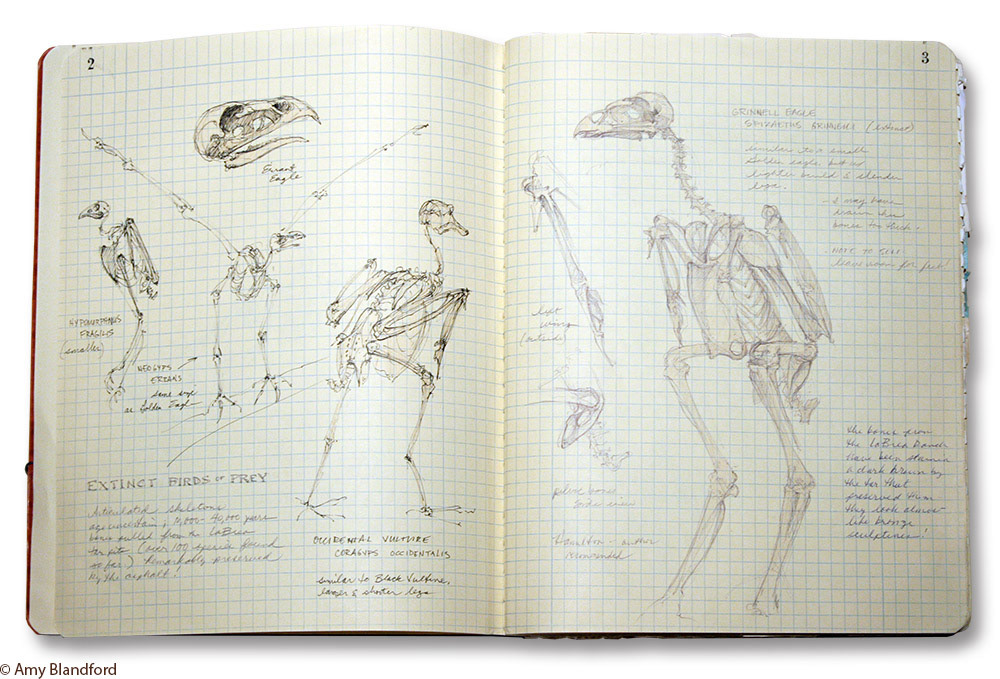 2
Errant
Eagle
HYPOMORPHNUS
FRAGILIS
(smaller)
NEOGYPS
ERRANS
same size
as Golden Eagle
EXTINCT BIRDS OF PREY
Articulated skeletons
age uncertain; 10,000-40,000 years
bones pulled from the LaBrea
tar pits (over 100 species found
so far.) Remarkably preserved
by the asphalt!
OCCIDENTAL VULTURE
CORAGYPS OCCIDENTALIS
similar to Black Vulture,
larger & shorter legs
3
GRINNELL EAGLE
SPIZAETUS GRINNELLI (extinct)
similar to a small
Golden eagle but w/
lighter build & slender
legs.
- I may have
drawn the
bones too thick.
NOTE TO SELF
leave room for feet!
left
wing
(outside)
pelvic bones
side view
Hamilton - author
recommended
the bones from
the LaBrea Ranch
have been stained
a dark brown by
the tar that
preserved them
they look almost
like bronze
sculptures!
© Amy Blandford